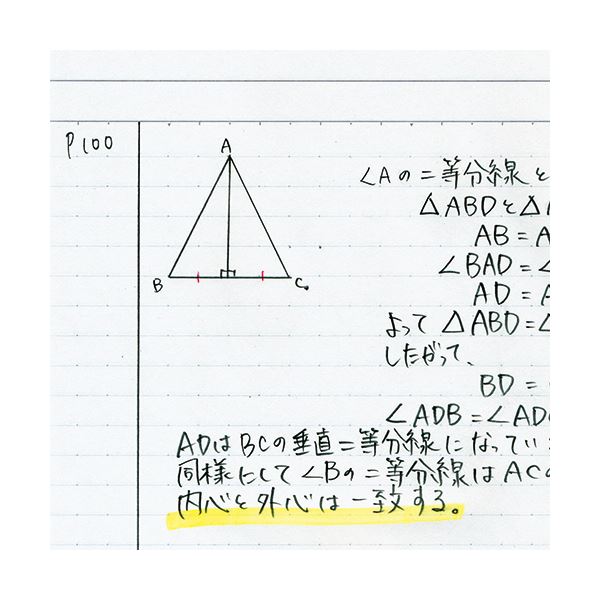 P100
A
B
C
∠Aの二等分線と
△ABDと△
AB = A
∠BAD = ∠
AD = A
よって △ABD = △
したがって、
BD =
∠ADB = ∠AD
ADはBCの垂直二等分線になって
同様にして ∠Bの二等分線はACの
内心と外心は一致する。